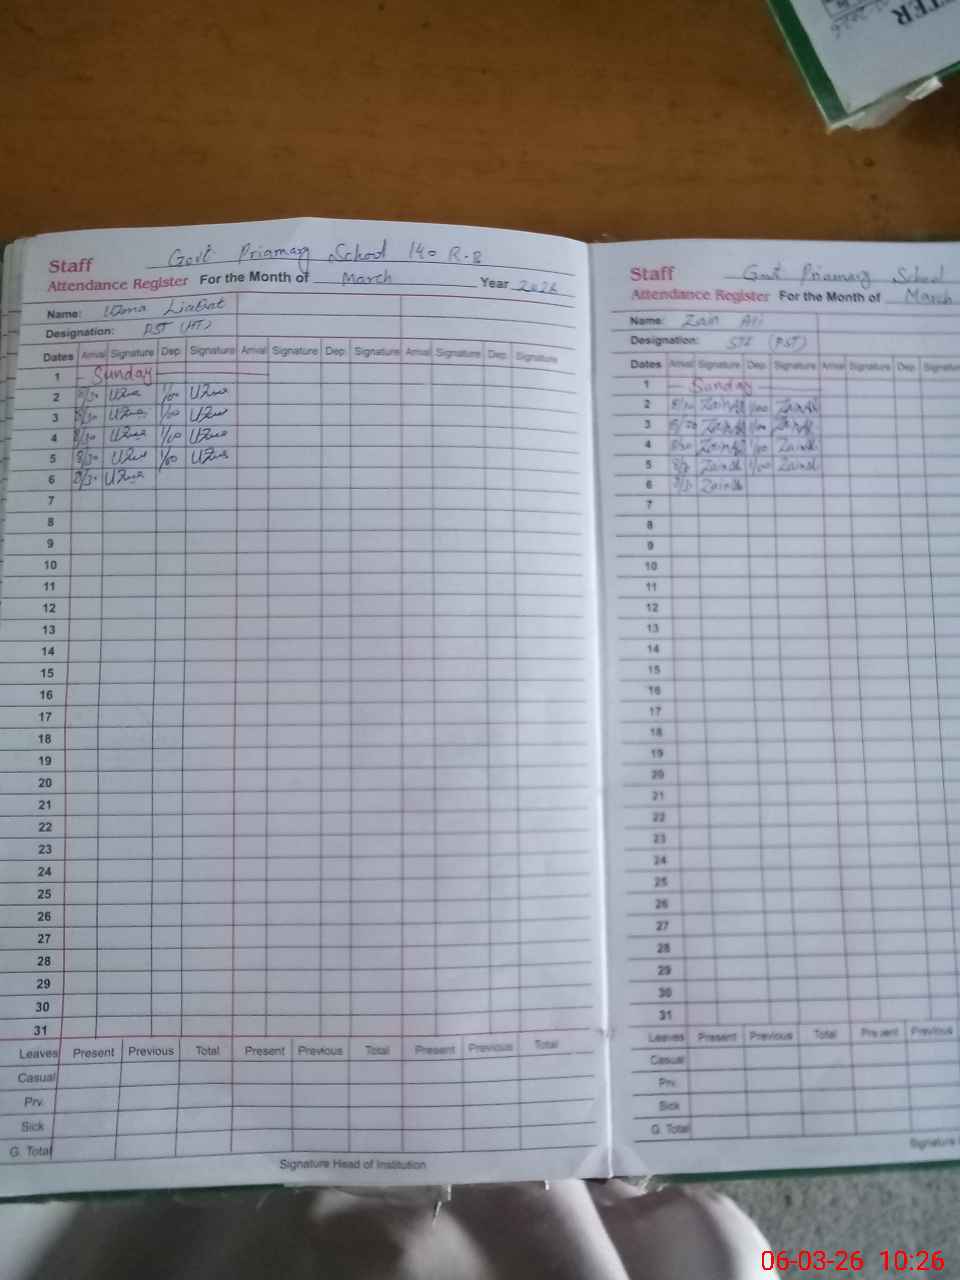 TER
2026
Staff Govt Priamary School 140 R.B
Attendance Register For the Month of March Year 2026
Name: Uzma Liaqat
Designation: PST (HT)
Dates Arrival Signature Dep. Signature Arrival Signature Dep. Signature Arrival Signature Dep. Signature
1 Sunday
2 8/30 Uzma 1/00 Uzma
3 8/30 Uzma 1/00 Uzma
4 8/30 Uzma 1/00 Uzma
5 8/30 Uzma 1/00 Uzma
6 8/30 Uzma
7
8
9
10
11
12
13
14
15
16
17
18
19
20
21
22
23
24
25
26
27
28
29
30
31
Leaves Present Previous Total Present Previous Total Present Previous Total
Casual
Prv.
Sick
G. Total
Signature Head of Institution
Staff Govt Priamary School
Attendance Register For the Month of March
Name: Zain Ali
Designation: (PST)
Dates Arrival Signature Dep. Signature Arrival Signature Dep. Signature
1 Sunday
2 8/30 Zain Ali 1/00 Zain Ali
3 8/30 Zain Ali 1/00 Zain Ali
4 8/30 Zain Ali 1/00 Zain Ali
5 8/30 Zain Ali 1/00 Zain Ali
6 8/30 Zain Ali
7
8
9
10
11
12
13
14
15
16
17
18
19
20
21
22
23
24
25
26
27
28
29
30
31
Leaves Present Previous Total Present Previous
Casual
Prv.
Sick
G. Total
Signature
06-03-26 10:26